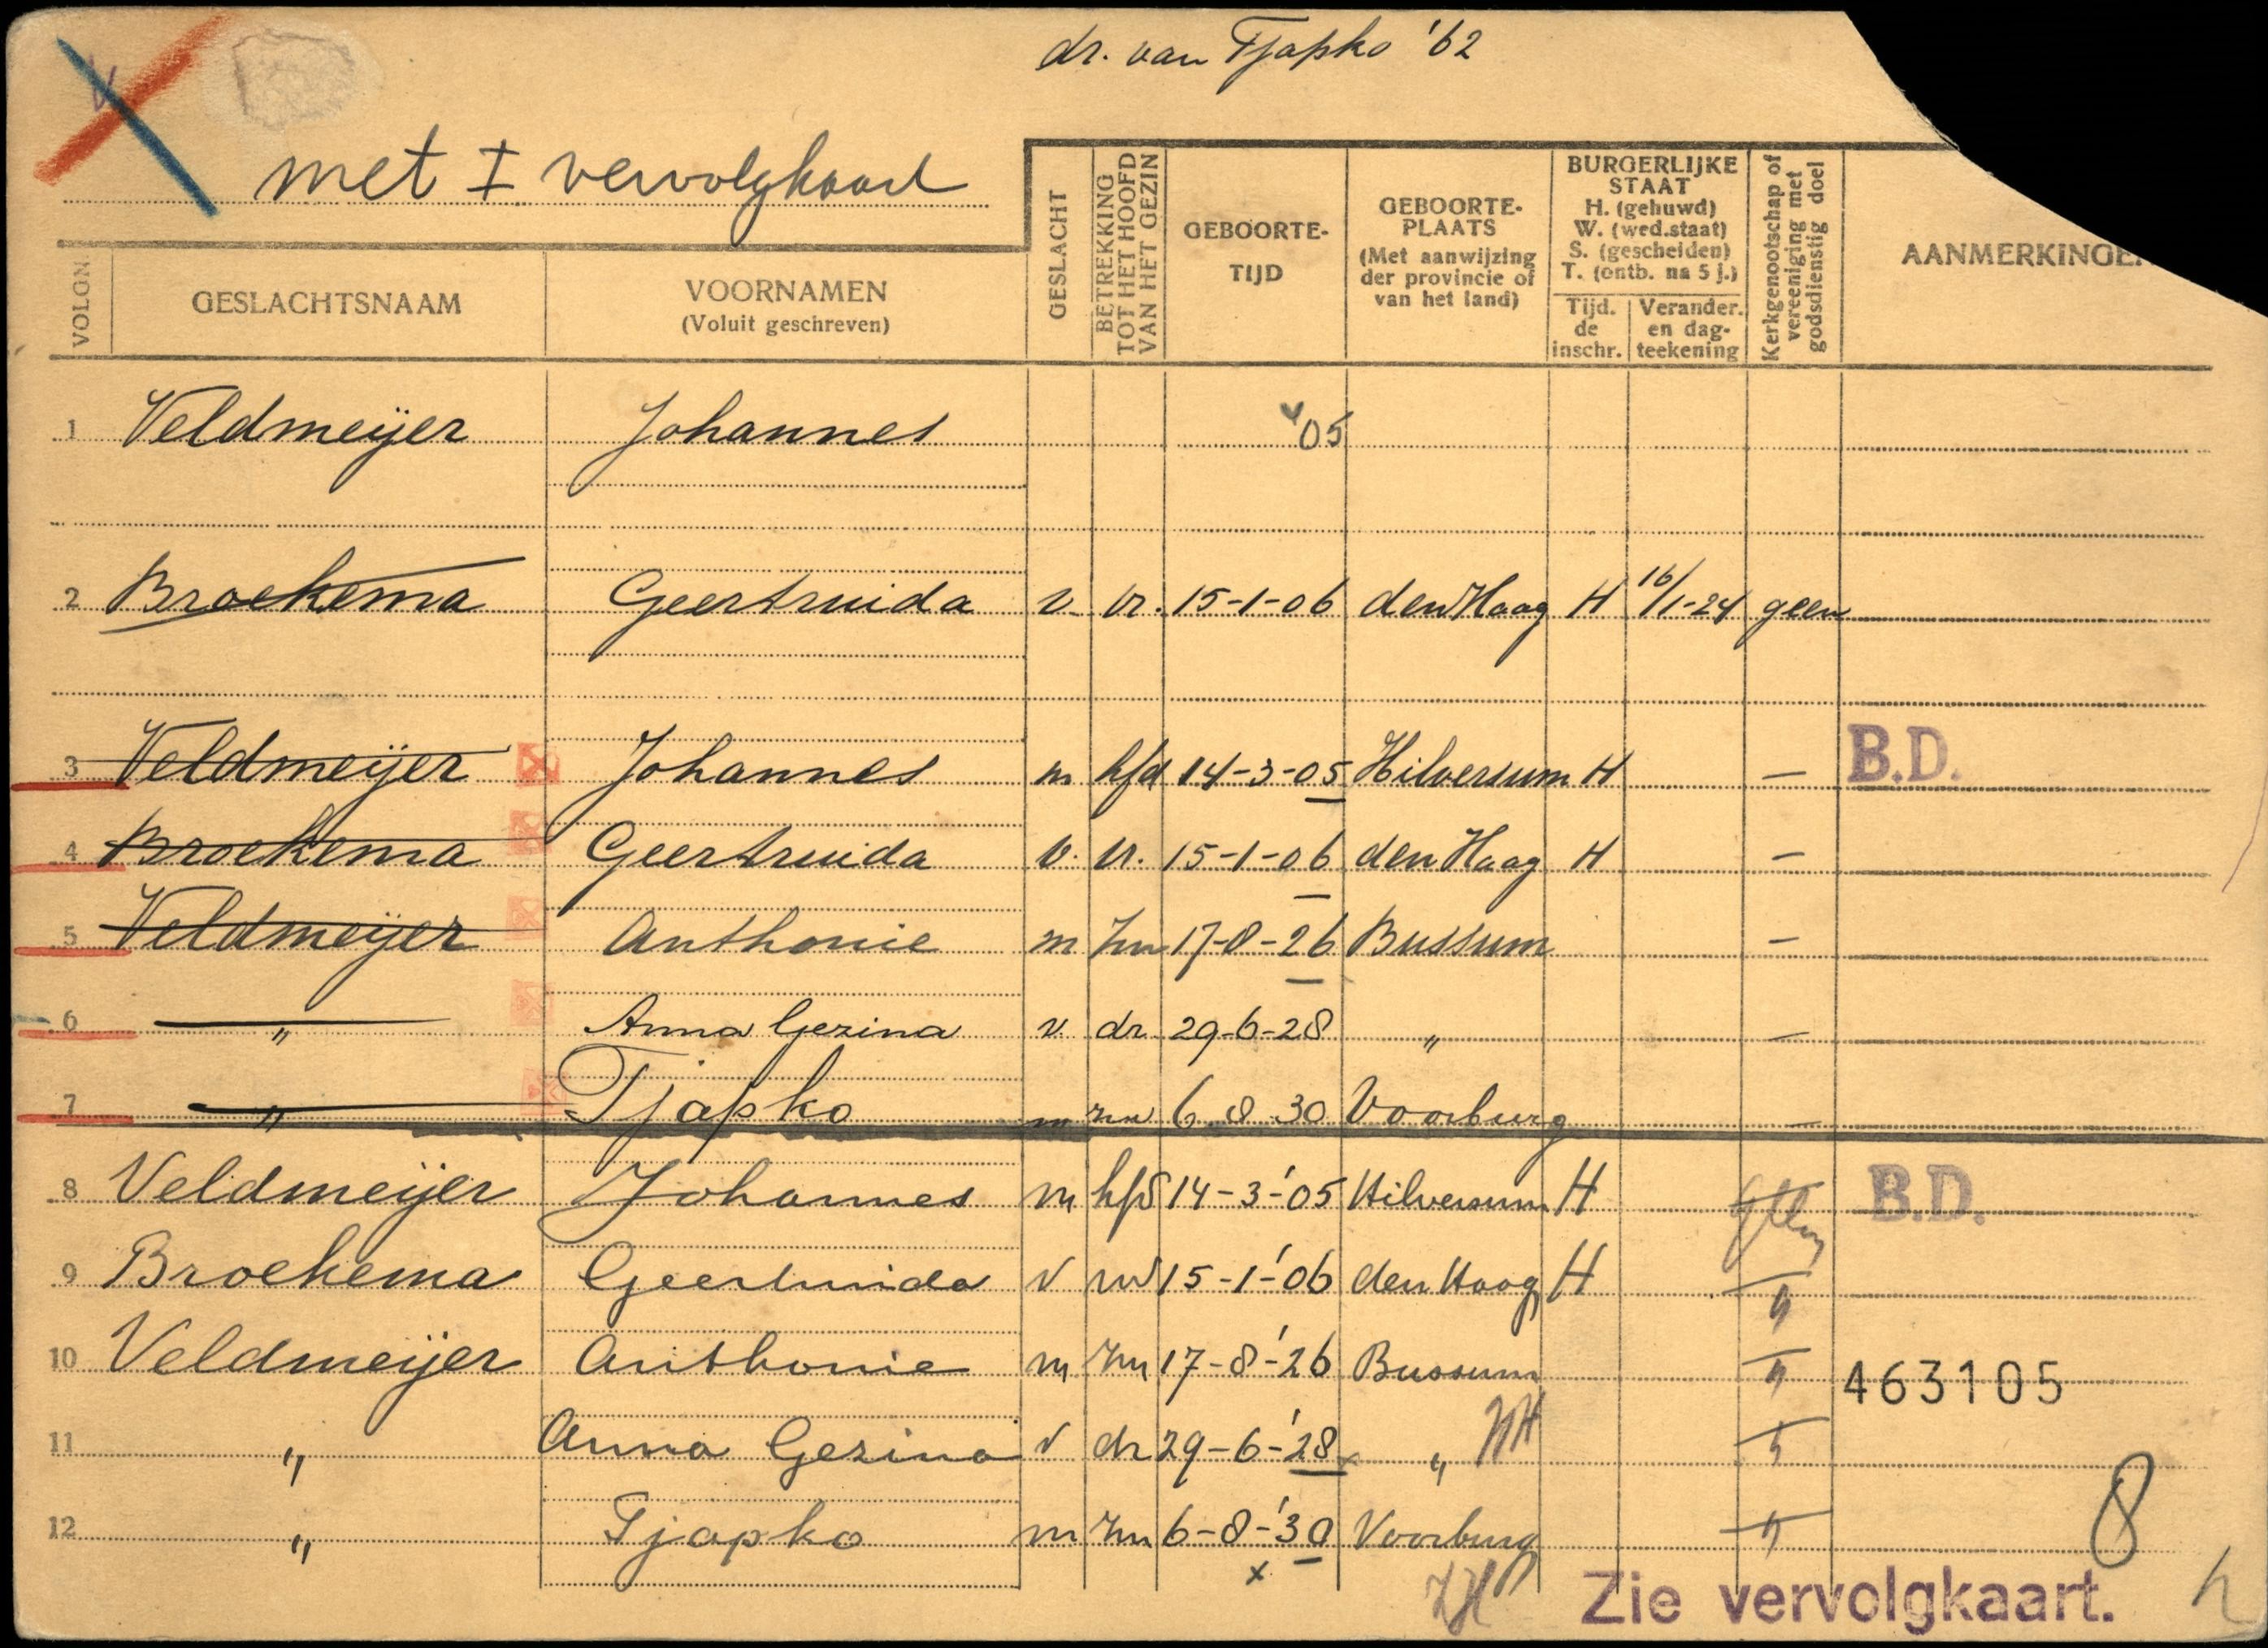 dr. van Tjapko '62
met I vervolgkaart
VOLGN
GESLACHTSNAAM
VOORNAMEN
(Voluit geschreven)
GESLACHT
BETREKKING TOT HET HOOFD VAN HET GEZIN
GEBOORTE-
TIJD
GEBOORTE-
PLAATS
(Met aanwijzing
der provincie of
van het land)
BURGERLIJKE
STAAT
H. (gehuwd)
W. (wed.staat)
S. (gescheiden)
T. (ontb. na 5 j.)
Tijd.
de
inschr.
Verander.
en dag-
teekening
Kerkgenootschap of vereeniging met godsdienstig doel
AANMERKINGE
1 Veldmeijer Johannes 05
2 Broekema Geertruida v vr. 15-1-06 den Haag H 16/1-24 geen
3 Veldmeijer Johannes m hfd 14-3-05 Hilversum H — B.D.
4 Broekema Geertruida v. vr. 15-1-06 den Haag H —
5 Veldmeijer Anthonie m zn 17-8-26 Bussum —
6 " Anna Gezina v. dr. 29-6-28 " —
7 " Tjapko m zn 6.8.30 Voorburg —
8 Veldmeijer Johannes m hfd 14-3-'05 Hilversum H B.D.
9 Broekema Geertruida v 15-1-'06 den Haag H "
10 Veldmeijer Anthonie m zn 17-8-'26 Bussum " 463105
11 " Anna Gezina v dr 29-6-'28 x " NH "
12 " Tjapko m zn 6-8-'30 Voorburg "
x ZH
8
Zie vervolgkaart.